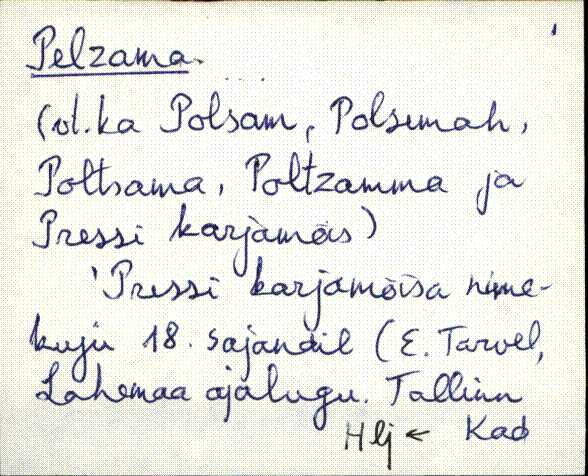 Pelzama.
(vt.ka Polsam, Polsemah,
Poltsama, Poltzamma ja
Pressi karjamõis)
'Pressi karjamõisa nime-
kuju 18. sajandil (E. Tarvel,
Lahemaa ajalugu. Tallinn
Hlj ← Kad